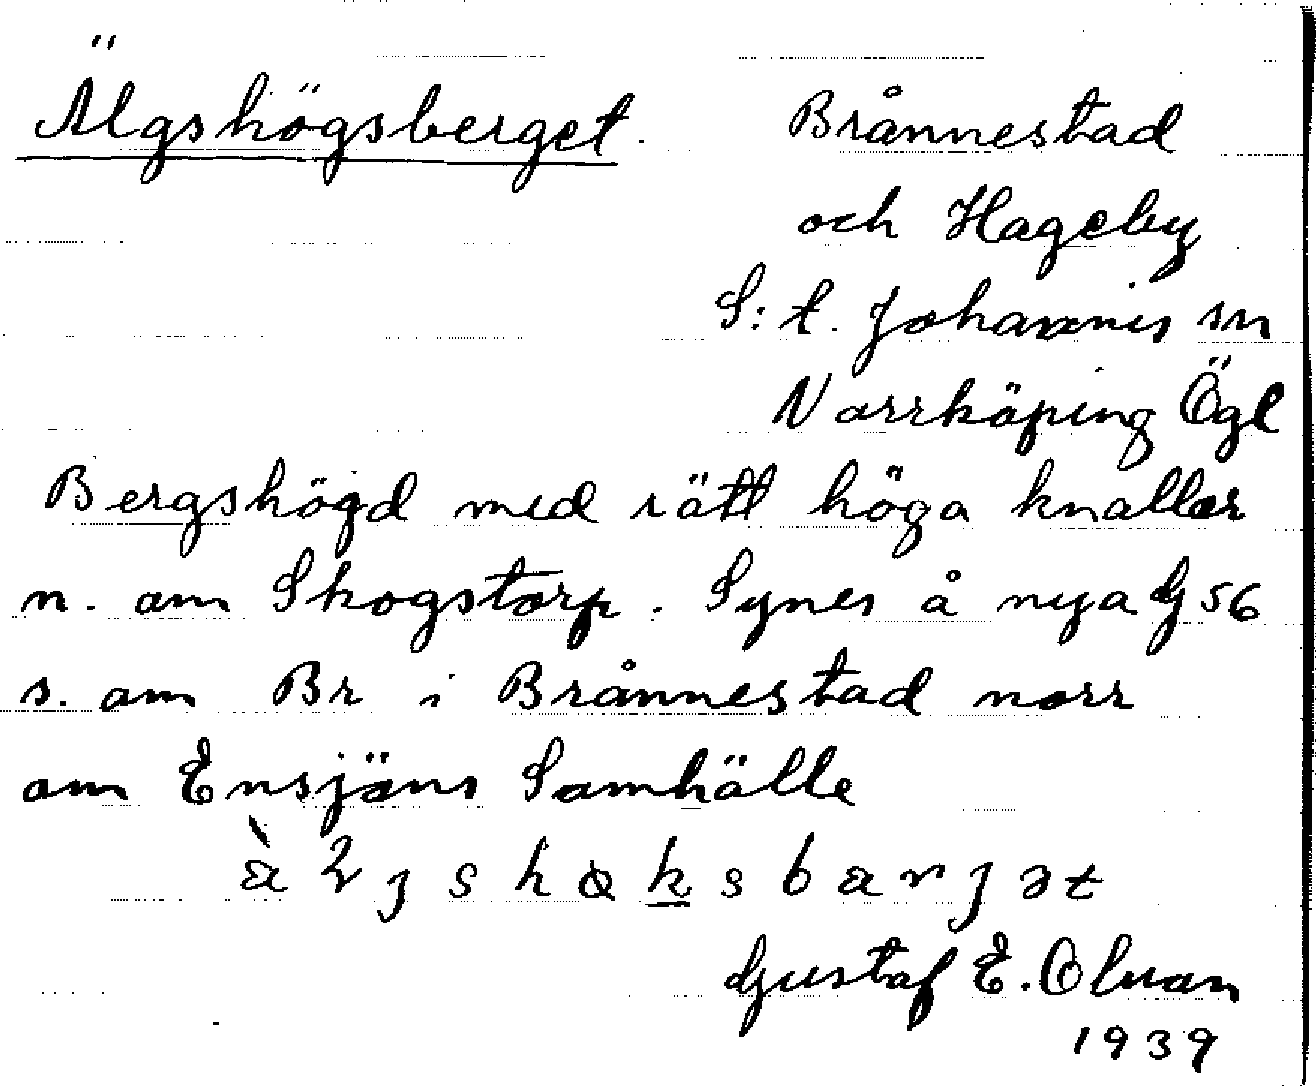 Älgshögsberget. Brånnestad
och Hageby
S:t. Johannis sn
Norrköping Ögl
Bergshögd med rätt höga knallar
n. om Skogstorp. Synes å nya G 56
s. om Br i Brånnestad norr
om Ensjöns Samhälle
Gustaf E. Olson
1939